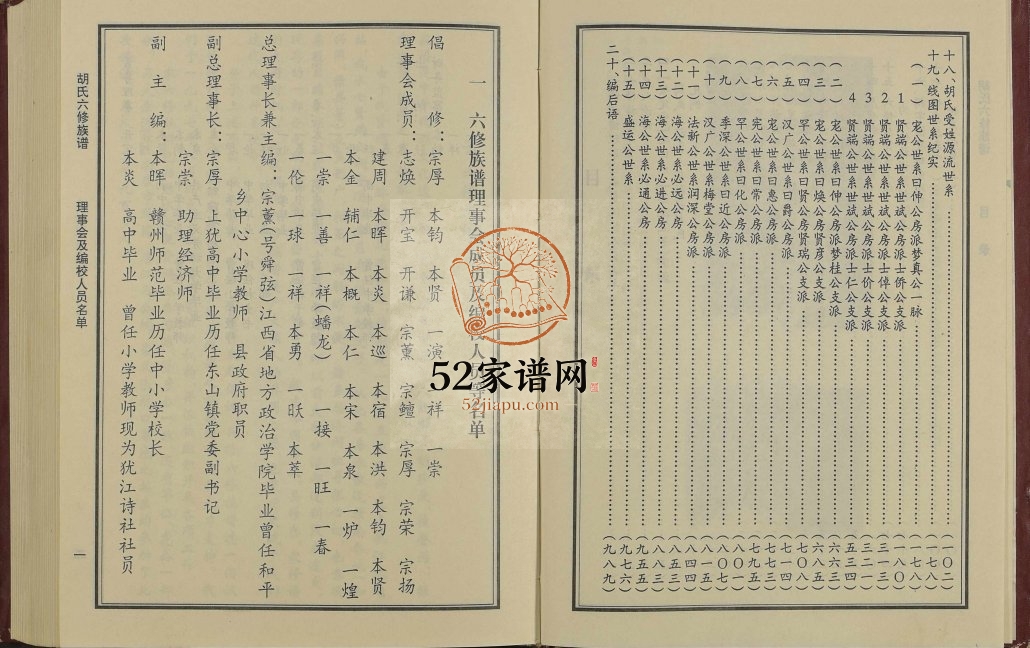 十八、胡氏受姓源流世系……(一〇二)
十九、线图世系纪实……(一七八)
(一)宠公世系曰伸公房派梦真公一脉……(一七八)
1 贤端公世系世斌公房派士侨公支派……(一八〇)
2 贤端公世系世斌公房派士倬公支派……(二一三)
3 贤端公世系世斌公房派士价公支派……(三二一)
4 贤端公世系世斌公房派士仁公支派……(五三四)
(二)宠公世系曰伸公房派梦桂公支派……(六六三)
(三)宠公世系曰焕公房派贤彦公支派……(六八五)
(四)罕公世系曰贤公房贤瑞公支派……(七〇八)
(五)汉广公世系曰爵公房派……
(六)宠公世系曰惠公房派……(七七三)
(七)宪公世系曰常公房派……(七九五)
(八)罕公世系曰化公房派……(八〇七)
(九)季深公世系曰近公房派……
(十)汉广公世系梅堂公房派……(八一五)
(十一)法新公世系润深公房派……(八四四)
(十二)海公世系必远公房……(八五三)
(十三)海公世系必进公房……(八八三)
(十四)海公世系必通公房……(九五五)
(十五)盛运公世系……(九七六)
二十、编后语……(九八九)
一 六修族谱理事会成员及编校人员名单
倡修：宗厚 本钧 本贤 一演 一祥 一崇
理事会成员：志焕 开宝 开谦 宗薰 宗鳣 宗厚 宗荣 宗扬
建周 本晖 本炎 本巡 本宿 本洪 本钧 本贤
本金 辅仁 本概 本仁 本宋 本泉 一炉 一煌
一崇 一善 一祥(蟠龙) 一接 一旺 一春
一伦 一球 一祥 本勇 一肤 本萃
总理事长兼主编：宗薰(号舜弦)江西省地方政治学院毕业曾任和平
乡中心小学教师 县政府职员
副总理事长：宗厚 上犹高中毕业历任东山镇党委副书记
宗崇 助理经济师
副主编：本晖 赣州师范毕业历任中小学校长
本炎 高中毕业 曾任小学教师现为犹江诗社社员
胡氏六修族谱 理事会及编校人员名单 一
52家谱网
52jiapu.com